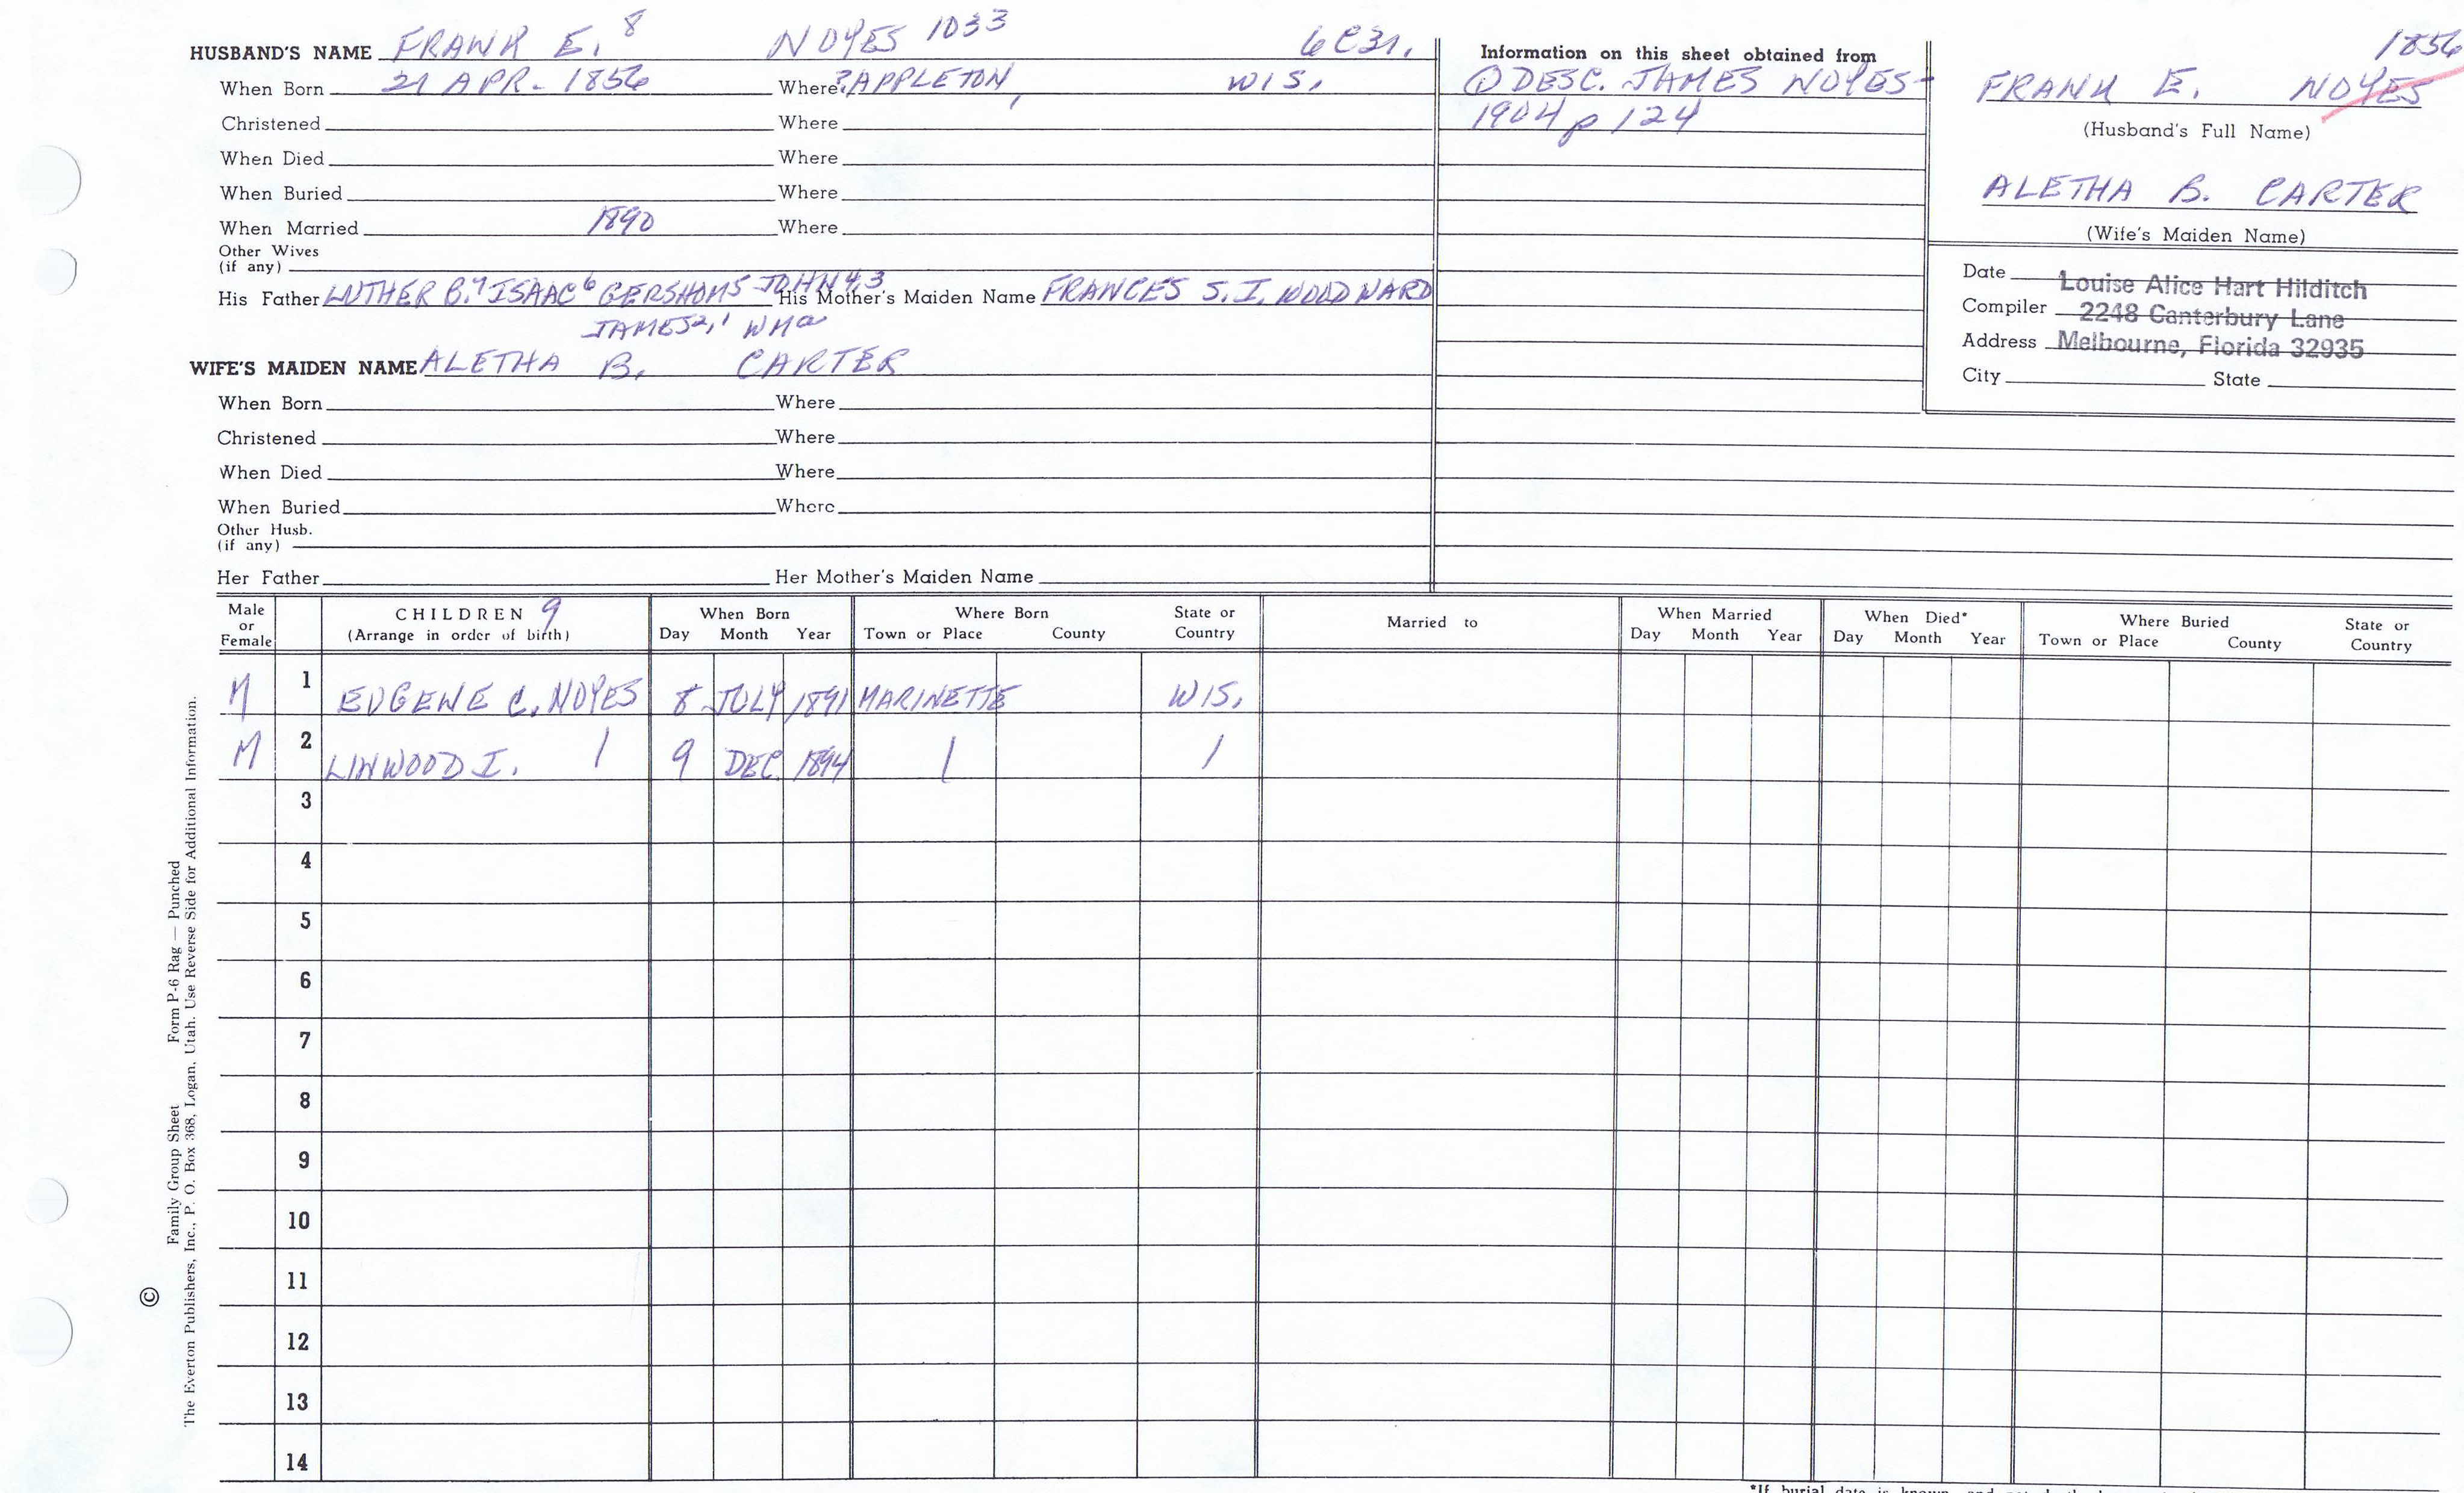 HUSBAND'S NAME FRANK E. 8 NOYES 1033 6C31.
When Born 21 APR. 1856 Where ? APPLETON, WIS.
Christened Where
When Died Where
When Buried Where
When Married 1890 Where
Other Wives
(if any)
His Father LUTHER B.7 ISAAC6 GERSHOM5 JOHN4,3 His Mother's Maiden Name FRANCES S. I. WOODWARD
JAMES2,1 WMa
WIFE'S MAIDEN NAME ALETHA B. CARTER
When Born Where
Christened Where
When Died Where
When Buried Where
Other Husb.
(if any)
Her Father Her Mother's Maiden Name
Information on this sheet obtained from
① DESC. JAMES NOYES-
1904 p 124
1856
FRANK E. NOYES
(Husband's Full Name)
ALETHA B. CARTER
(Wife's Maiden Name)
Date Louise Alice Hart Hilditch
Compiler 2248 Canterbury Lane
Address Melbourne, Florida 32935
City State
Male or Female CHILDREN 9 (Arrange in order of birth) When Born Day Month Year Where Born Town or Place County State or Country Married to When Married Day Month Year When Died* Day Month Year Where Buried Town or Place County State or Country
M 1 EUGENE C. NOYES 8 JULY 1891 MARINETTE WIS.
M 2 LINWOOD I. | 9 DEC. 1894 | |
3
4
5
6
7
8
9
10
11
12
13
14
Family Group Sheet Form P-6 Rag — Punched
© The Everton Publishers, Inc., P. O. Box 368, Logan, Utah. Use Reverse Side for Additional Information.
*If burial date is known, and